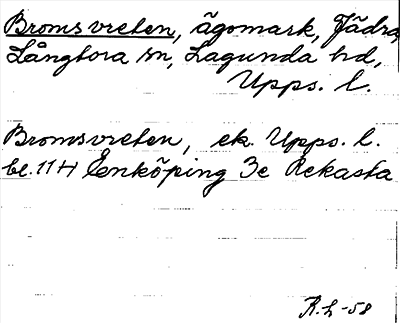 Bromsvreten, ägomark, Jädra,
Långtora sn, Lagunda hd,
Upps. l.
Bromsvreten, ek. Upps. l.
bl. 11 H Enköping 3e Rekasta
R.L-58